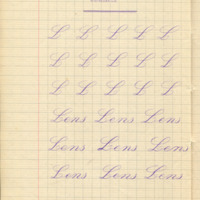 L L L L L
L L L L L
L L L L L
Lens Lens Lens
Lens Lens Lens
Lens Lens Lens